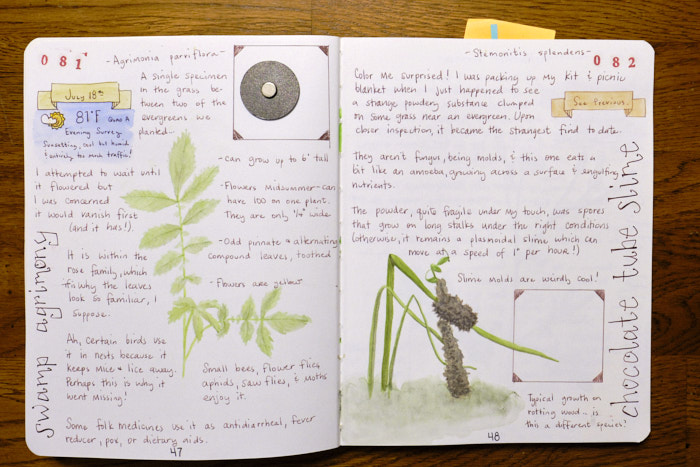 081
-Agrimonia parviflora-
July 18th
81°F
Evening Survey
Sunsetting, cool but humid
A single specimen
in the grass be-
tween two of the
evergreens we
planted...
I attempted to wait until
it flowered but
I was concerned
it would vanish first
(and it has!)
It is within the
rose family, which
is why the leaves
look so familiar, I
suppose.
Ah, certain birds use
it in nests because it
keeps mice & lice away.
Perhaps this is why it
went missing!
-can grow up to 6' tall
-Flowers midsummer-can
have 100 on one plant.
They are only 1/4" wide
-Odd pinnate & alternating
compound leaves, toothed
-Flowers are yellow
Small bees, flower flies,
aphids, saw flies, & moths
enjoy it.
Some folk medicines use it as antidiarrheal, fever
reducer, pox, or dietary aids.
swamp agrimony
47
-Stemonitis splendens-
082
See Previous.
Color me surprised! I was packing up my kit & picnic
blanket when I just happened to see
a strange powdery substance clumped
on some grass near an evergreen. Upon
closer inspection, it became the strangest find to date.
They aren't fungus, being molds, & this one eats a
bit like an amoeba, growing across a surface & engulfing
nutrients.
The powder, quite fragile under my touch, was spores
that grow on long stalks under the right conditions
(otherwise, it remains a plasmodial slime which can
move at a speed of 1" per hour!)
Slime molds are weirdly cool!
Typical growth on
rotting wood... is
this a different species?
chocolate tube slime
48